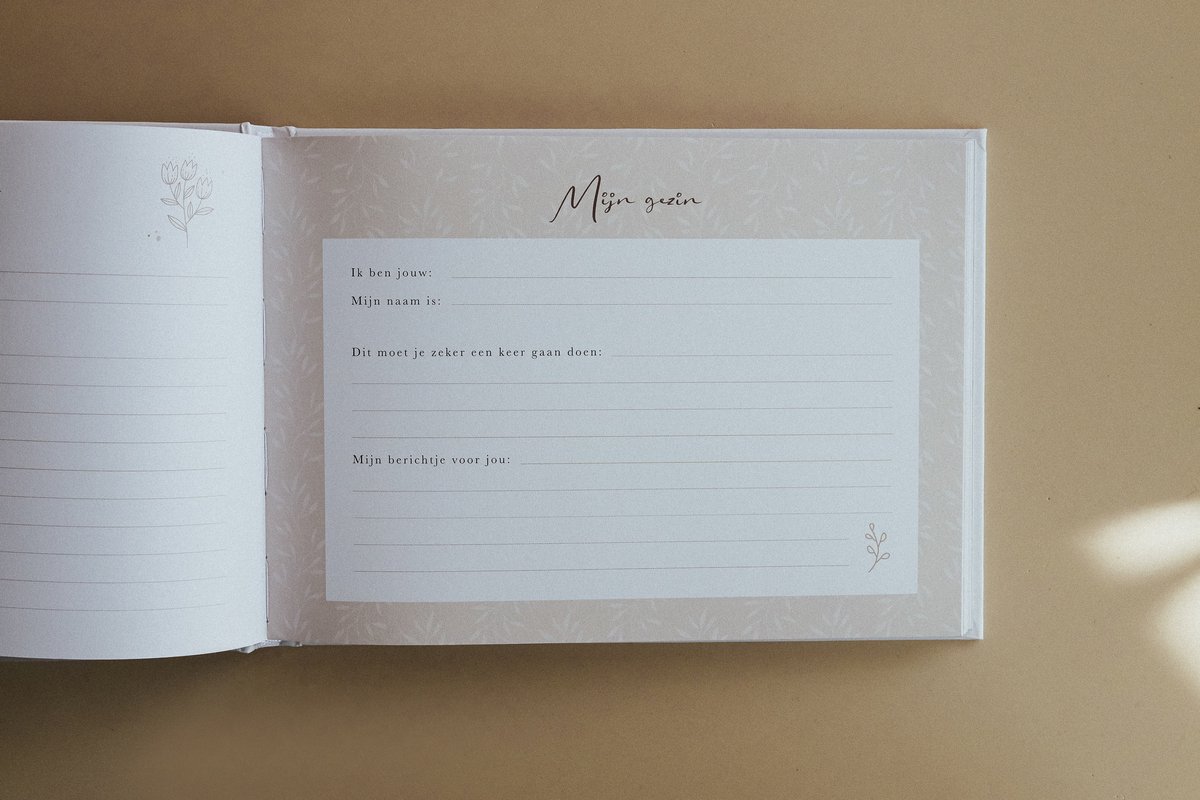 Mijn gezin
Ik ben jouw:
Mijn naam is:
Dit moet je zeker een keer gaan doen:
Mijn berichtje voor jou: